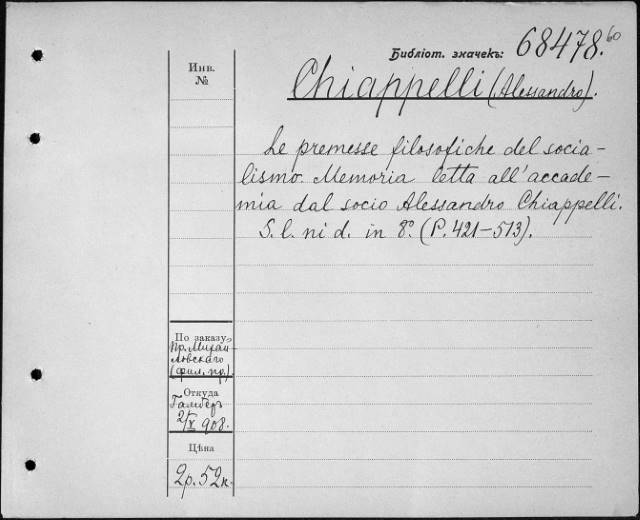 Библіот. значекъ: 68478.60
Инв. №
Chiappelli (Alessandro).
Le premesse filosofiche del socia-
lismo. Memoria letta all'accade-
mia dal socio Alessandro Chiappelli.
S. l. ni d. in 8°. (P. 421-513).
По заказу
Пр. Михай-
ловскаго
(фил. пр.).
Откуда
Гамберъ
2/X 908.
Цѣна
2р. 52к.